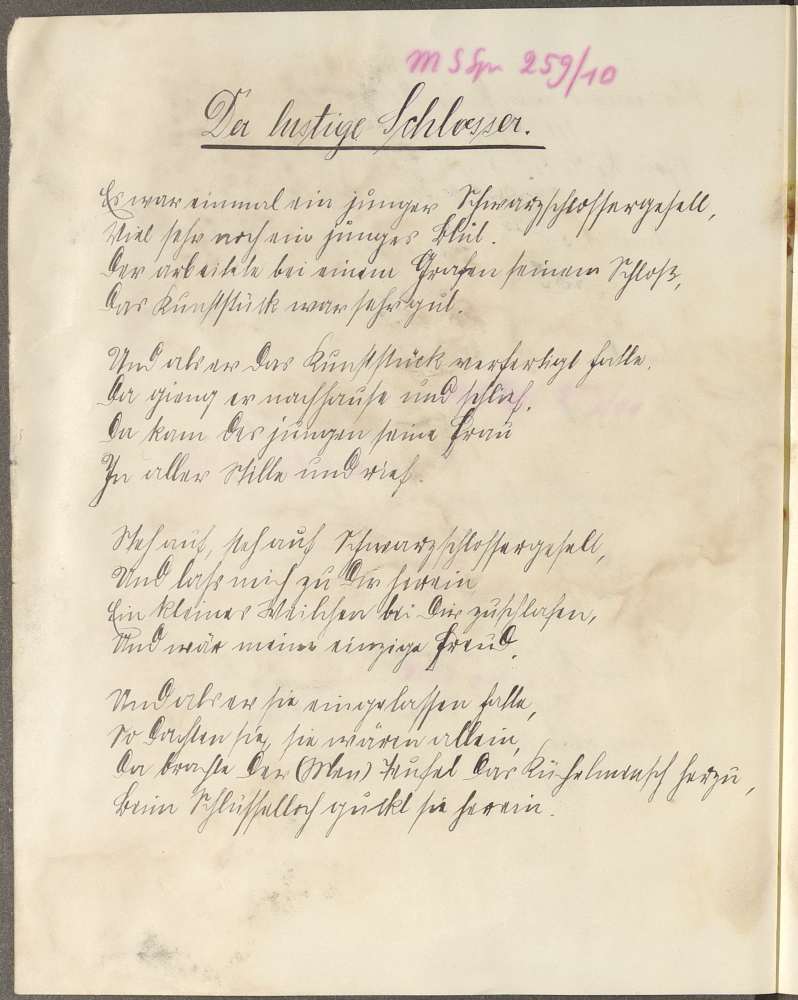 M S Spr 259/10
Der lustige Schlosser.
Es war einmal ein junger Schwarzschlossergesell,
Viel sehr noch ein junges Blut.
Der arbeitete bei einem Grafen seinem Schloß,
Das Kunststück war sehr gut.
Und als er das Kunststück verfertigt hatte.
Da gieng er nachhause und schlief.
Da kam des jungen seine Frau
In aller Stille und rief.
Steh auf, steh auf Schwarzschlossergesell,
Und lass mich zu Dir herein
Ein kleines Weilchen bei Dir zuschlafen,
Und wär meine einzige Freud.
Und als er sie eingelassen hatte,
So dachten sie, sie wären allein,
Da brachte der Teufel das herzu,
Beim Schlüsselloch guckt sie herein.